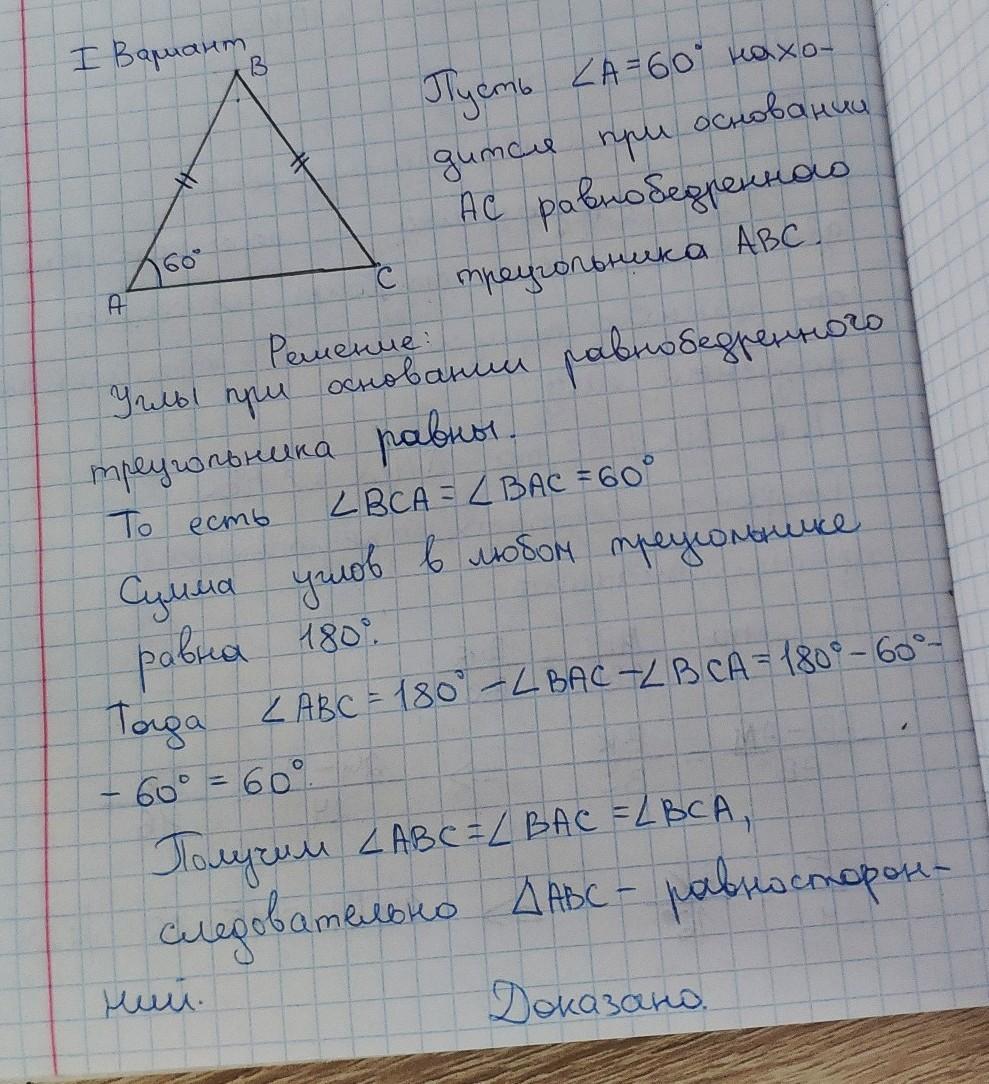 I Вариант
B
A
C
60°
Пусть ∠A=60° нахо-
дится при основании
AC равнобедренного
треугольника ABC.
Решение:
Углы при основании равнобедренного
треугольника равны.
То есть ∠BCA = ∠BAC = 60°
Сумма углов в любом треугольнике
равна 180°.
Тогда ∠ABC = 180° - ∠BAC - ∠BCA = 180° - 60° -
- 60° = 60°.
Получим ∠ABC = ∠BAC = ∠BCA,
следовательно ΔABC - равносторон-
ний.
Доказано.